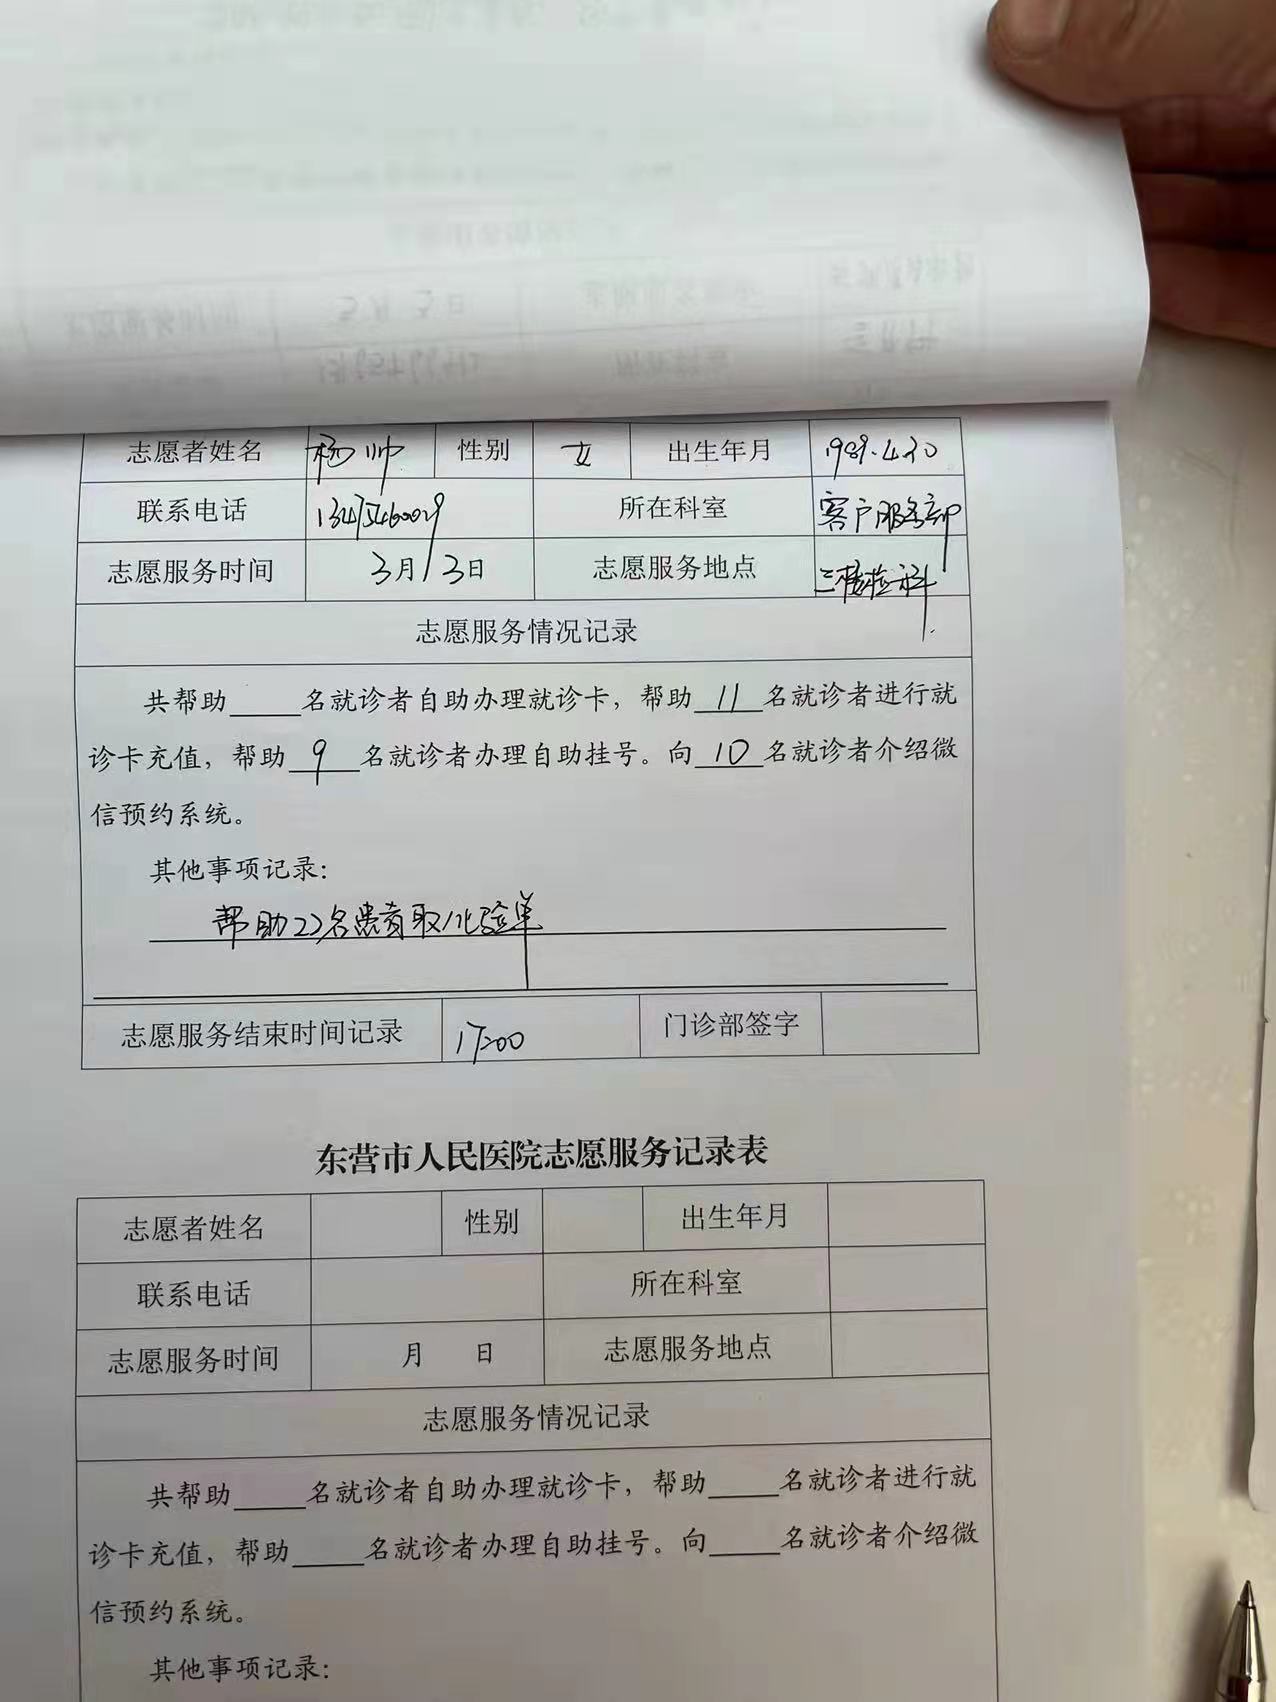 志愿者姓名 杨帅 性别 女 出生年月 1989.4.20
联系电话 所在科室 客户服务部
志愿服务时间 3月13日 志愿服务地点 三楼检验科
志愿服务情况记录
共帮助____名就诊者自助办理就诊卡，帮助11名就诊者进行就
诊卡充值，帮助9名就诊者办理自助挂号。向10名就诊者介绍微
信预约系统。
其他事项记录：
帮助22名患者取化验单
志愿服务结束时间记录 17:00 门诊部签字
东营市人民医院志愿服务记录表
志愿者姓名 性别 出生年月
联系电话 所在科室
志愿服务时间 月 日 志愿服务地点
志愿服务情况记录
共帮助____名就诊者自助办理就诊卡，帮助____名就诊者进行就
诊卡充值，帮助____名就诊者办理自助挂号。向____名就诊者介绍微
信预约系统。
其他事项记录：